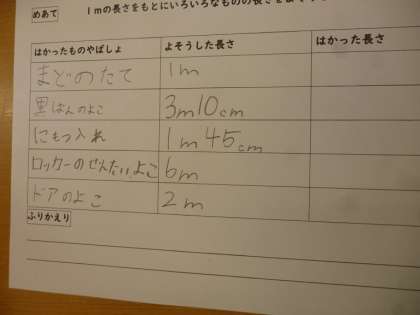 めあて
1mの長さをもとにいろいろなものの長さを
はかったものやばしょ よそうした長さ はかった長さ
まどのたて 1m
黒ばんのよこ 3m10cm
にもつ入れ 1m45cm
ロッカーのぜんたい、よこ 6m
ドアのよこ 2m
ふりかえり